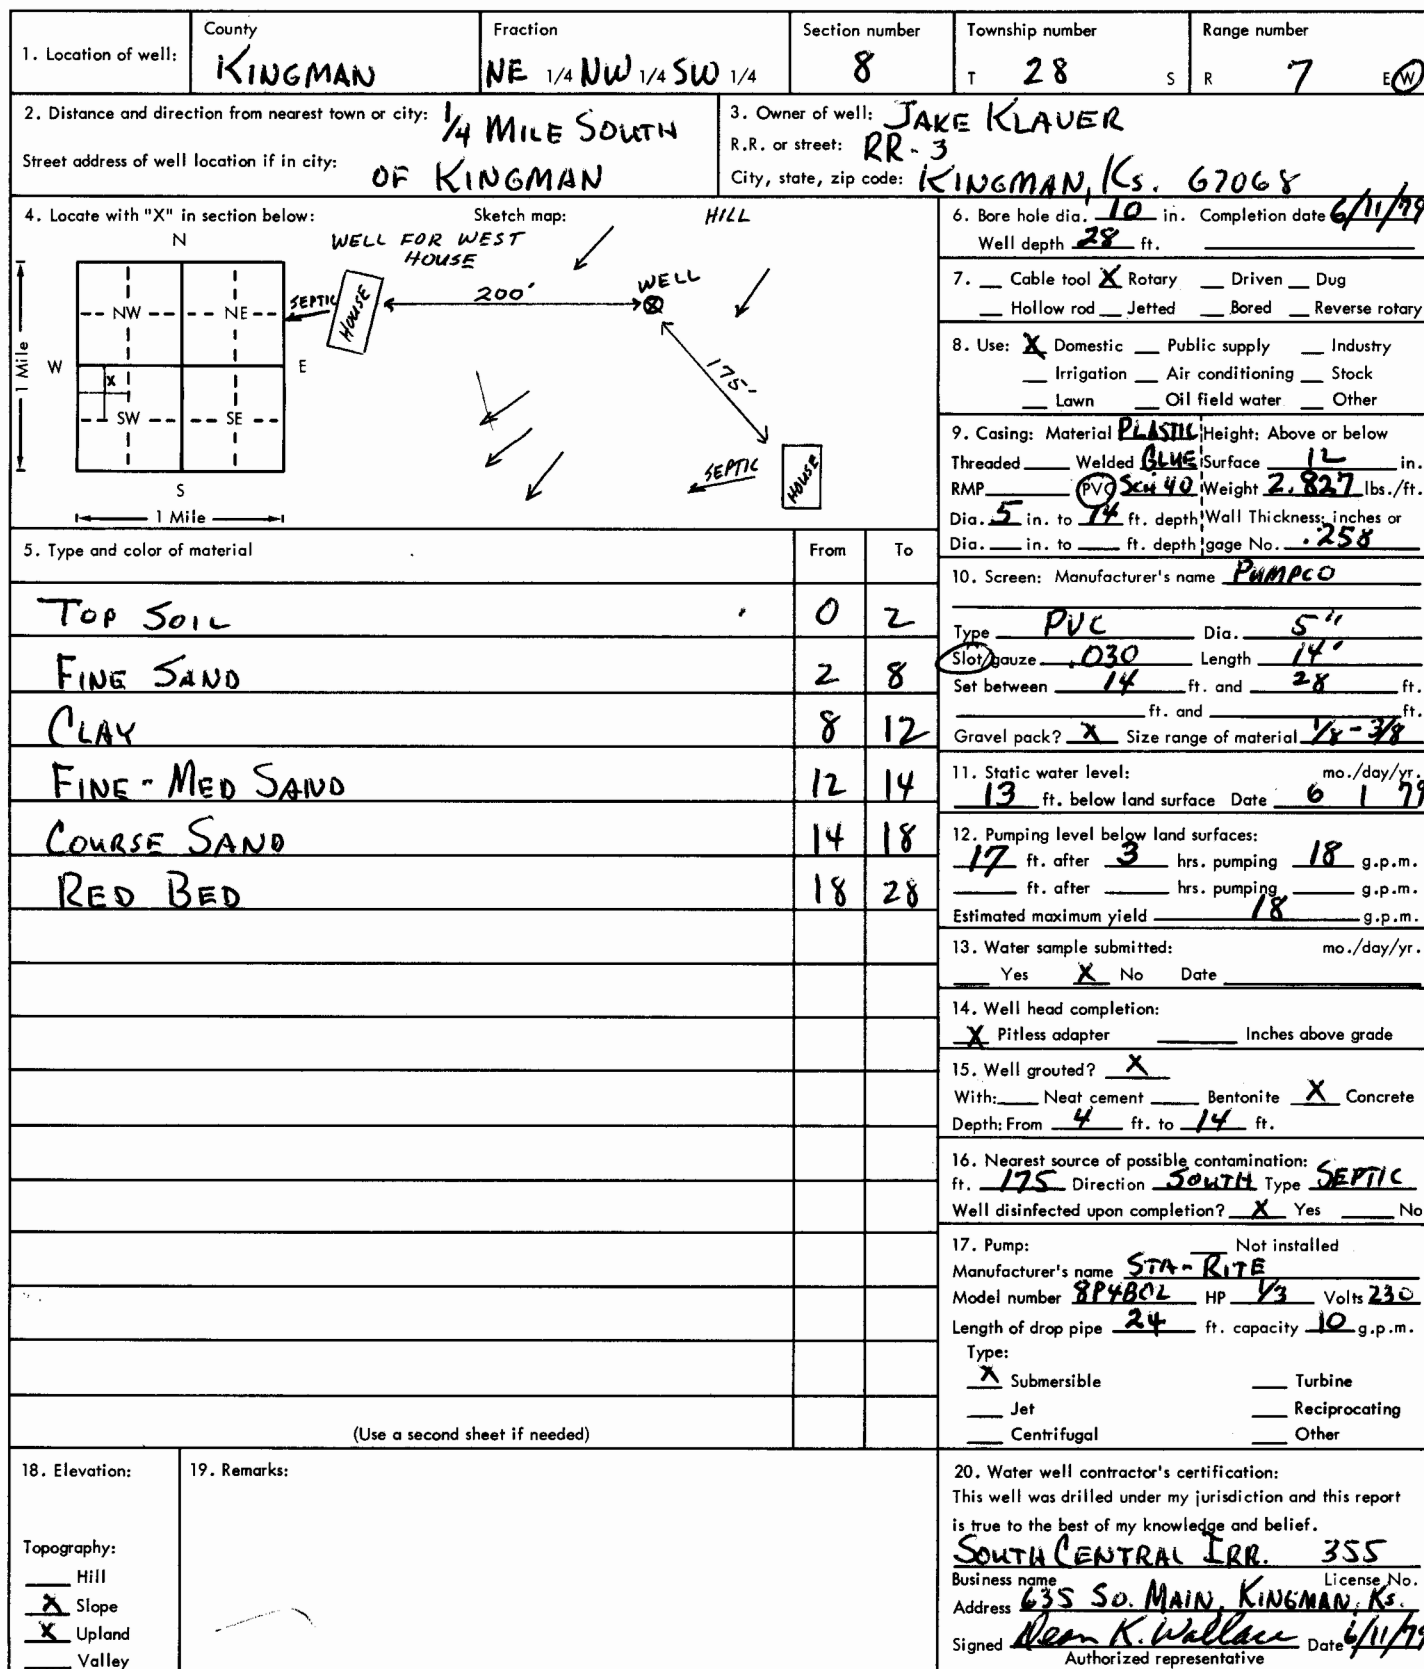 1. Location of well:
County
KINGMAN
Fraction
NE 1/4 NW 1/4 SW 1/4
Section number
8
Township number
T 28 S
Range number
R 7 E W
2. Distance and direction from nearest town or city: 1/4 MILE SOUTH
Street address of well location if in city: OF KINGMAN
3. Owner of well: JAKE KLAVER
R.R. or street: RR-3
City, state, zip code: KINGMAN, Ks. 67068
4. Locate with "X" in section below:
N
NW NE
W E
X
SW SE
S
1 Mile
1 Mile
Sketch map:
HILL
WELL FOR WEST
HOUSE
SEPTIC
HOUSE
200'
WELL
175'
SEPTIC
HOUSE
5. Type and color of material From To
TOP SOIL 0 2
FINE SAND 2 8
CLAY 8 12
FINE-MED SAND 12 14
COURSE SAND 14 18
RED BED 18 28
(Use a second sheet if needed)
6. Bore hole dia. 10 in. Completion date 6/11/79
Well depth 28 ft.
7. Cable tool X Rotary Driven Dug
Hollow rod Jetted Bored Reverse rotary
8. Use: X Domestic Public supply Industry
Irrigation Air conditioning Stock
Lawn Oil field water Other
9. Casing: Material PLASTIC Height: Above or below
Threaded Welded GLUE Surface 12 in.
RMP PVC SCH 40 Weight 2.827 lbs./ft.
Dia. 5 in. to 14 ft. depth Wall Thickness: inches or
Dia. in. to ft. depth gage No. .258
10. Screen: Manufacturer's name PUMPCO
Type PVC Dia. 5"
Slot/gauze .030 Length 14'
Set between 14 ft. and 28 ft.
ft. and ft.
Gravel pack? X Size range of material 1/8 - 3/8
11. Static water level: mo./day/yr.
13 ft. below land surface Date 6 1 79
12. Pumping level below land surfaces:
17 ft. after 3 hrs. pumping 18 g.p.m.
ft. after hrs. pumping g.p.m.
Estimated maximum yield 18 g.p.m.
13. Water sample submitted: mo./day/yr.
Yes X No Date
14. Well head completion:
X Pitless adapter Inches above grade
15. Well grouted? X
With: Neat cement Bentonite X Concrete
Depth: From 4 ft. to 14 ft.
16. Nearest source of possible contamination:
ft. 175 Direction SOUTH Type SEPTIC
Well disinfected upon completion? X Yes No
17. Pump: Not installed
Manufacturer's name STA-RITE
Model number 8P4B02 HP 1/3 Volts 230
Length of drop pipe 24 ft. capacity 10 g.p.m.
Type:
X Submersible Turbine
Jet Reciprocating
Centrifugal Other
18. Elevation:
Topography:
Hill
X Slope
X Upland
Valley
19. Remarks:
20. Water well contractor's certification:
This well was drilled under my jurisdiction and this report
is true to the best of my knowledge and belief.
SOUTH CENTRAL IRR. 355
Business name License No.
Address 635 SO. MAIN, KINGMAN, Ks.
Signed Dean K. Wallace Date 6/11/79
Authorized representative